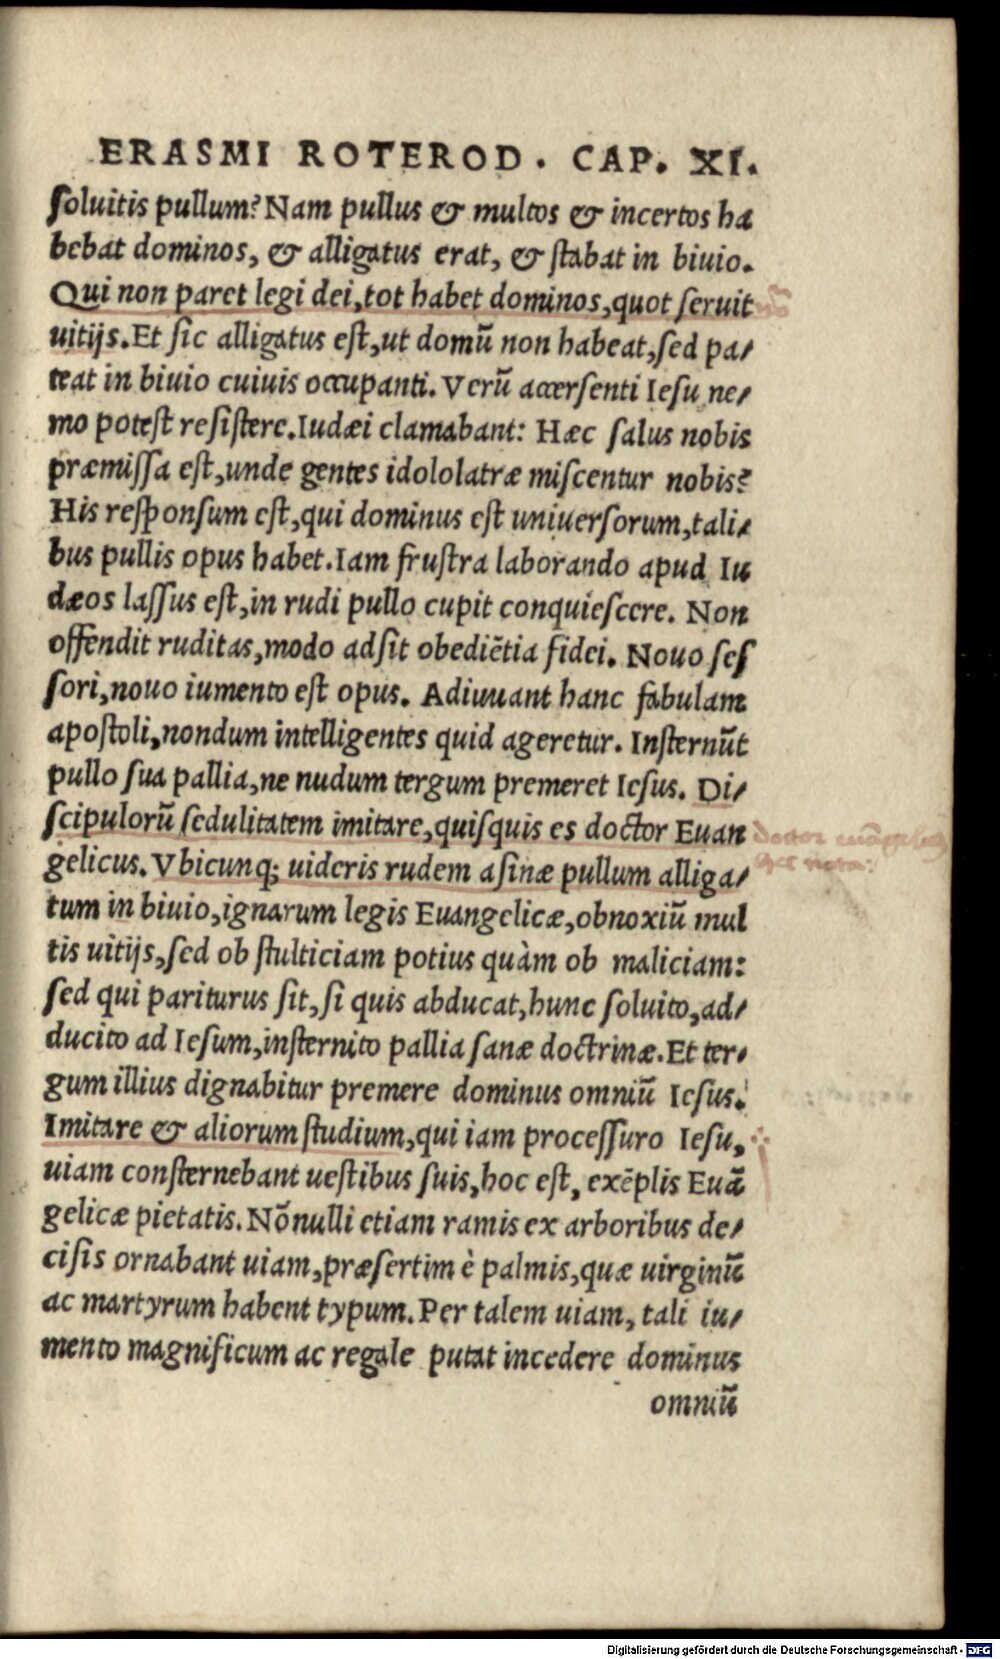 ERASMI ROTEROD. CAP. XI.
soluitis pullum? Nam pullus & multos & incertos ha
bebat dominos, & alligatus erat, & stabat in biuio.
Qui non paret legi dei, tot habet dominos, quot seruit
uitijs. Et sic alligatus est, ut domū non habeat, sed pa/
teat in biuio cuiuis occupanti. Verū accersenti Iesu ne/
mo potest resistere. Iudæi clamabant: Hæc salus nobis
præmissa est, unde gentes idololatræ miscentur nobis?
His responsum est, qui dominus est uniuersorum, tali/
bus pullis opus habet. Iam frustra laborando apud Iu
dæos lassus est, in rudi pullo cupit conquiescere. Non
offendit ruditas, modo adsit obediētia fidei. Nouo ses
sori, nouo iumento est opus. Adiuuant hanc fabulam
apostoli, nondum intelligentes quid ageretur. Insternūt
pullo sua pallia, ne nudum tergum premeret Iesus. Di/
scipulorū sedulitatem imitare, quisquis es doctor Euan
gelicus. Vbicunq; uideris rudem asinæ pullum alliga/
tum in biuio, ignarum legis Euangelicæ, obnoxiū mul
tis uitijs, sed ob stulticiam potius quàm ob maliciam:
sed qui pariturus sit, si quis abducat, hunc soluito, ad/
ducito ad Iesum, insternito pallia sanæ doctrinæ. Et ter/
gum illius dignabitur premere dominus omniū Iesus.
Imitare & aliorum studium, qui iam processuro Iesu,
uiam consternebant uestibus suis, hoc est, exēplis Euā
gelicæ pietatis. Nōnulli etiam ramis ex arboribus de/
cisis ornabant uiam, præsertim è palmis, quæ uirginū
ac martyrum habent typum. Per talem uiam, tali iu/
mento magnificum ac regale putat incedere dominus
omniū
doctor
nota:
Digitalisierung gefördert durch die Deutsche Forschungsgemeinschaft - DFG